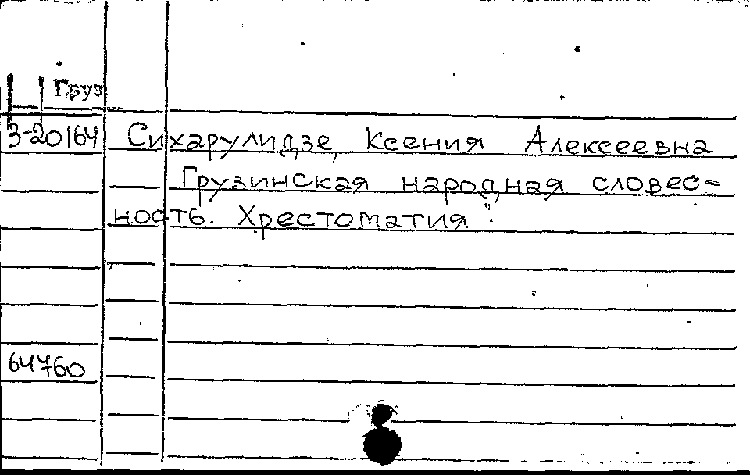 Груз
3-20164 Сихарулидзе, Ксения Алексеевна
Грузинская народная словес-
ность. Хрестоматия".
64760